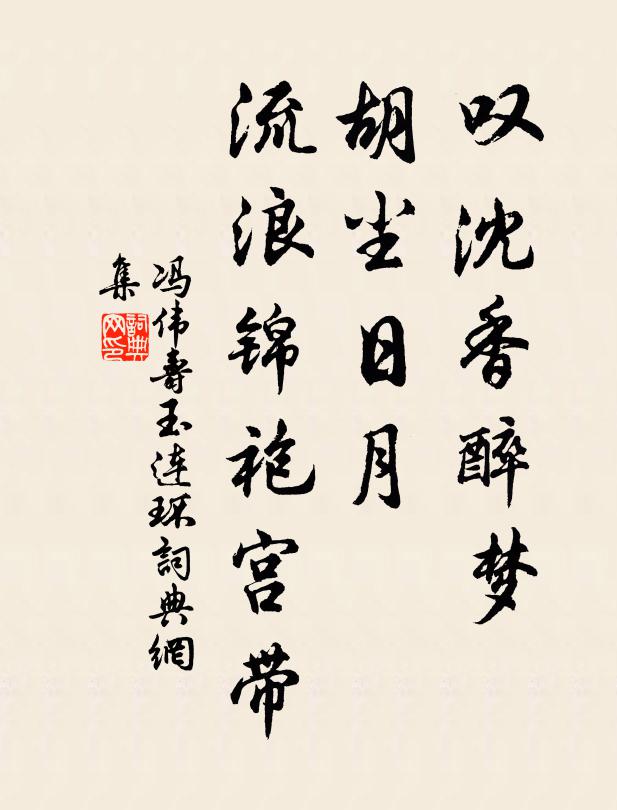 叹沈香醉梦
胡尘日月
流浪锦袍宫带
冯伟寿玉连环詞典網
集
詞典
网印